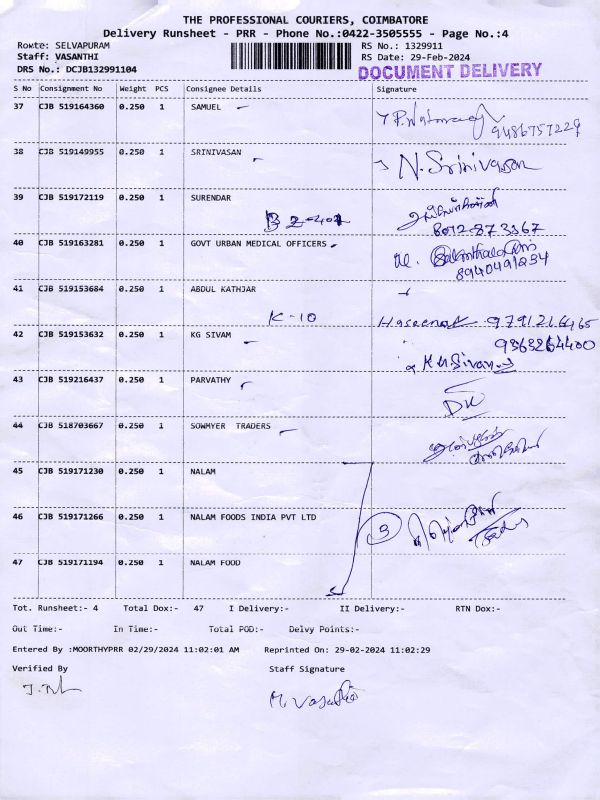 THE PROFESSIONAL COURIERS, COIMBATORE
Delivery Runsheet - PRR - Phone No.:0422-3505555 - Page No.:4
Route: SELVAPURAM RS No.: 1329911
Staff: VASANTHI RS Date: 29-Feb-2024
DRS No.: DCJB132991104 DOCUMENT DELIVERY
S No Consignment No Weight PCS Consignee Details Signature
37 CJB 519164360 0.250 1 SAMUEL
9486757229
38 CJB 519149955 0.250 1 SRINIVASAN N. Srinivasan
39 CJB 519172119 0.250 1 SURENDAR
8012-873367
40 CJB 519163281 0.250 1 GOVT URBAN MEDICAL OFFICERS
8940491234
41 CJB 519153684 0.250 1 ABDUL KATHJAR
K-10 Haseena 9791216465
42 CJB 519153632 0.250 1 KG SIVAM 9363264400
43 CJB 519216437 0.250 1 PARVATHY
44 CJB 518703667 0.250 1 SOWMYER TRADERS
45 CJB 519171230 0.250 1 NALAM
46 CJB 519171266 0.250 1 NALAM FOODS INDIA PVT LTD 3
47 CJB 519171194 0.250 1 NALAM FOOD
Tot. Runsheet:- 4 Total Dox:- 47 I Delivery:- II Delivery:- RTN Dox:-
Out Time:- In Time:- Total POD:- Delvy Points:-
Entered By :MOORTHYPRR 02/29/2024 11:02:01 AM Reprinted On: 29-02-2024 11:02:29
Verified By Staff Signature
M. Vasanthi